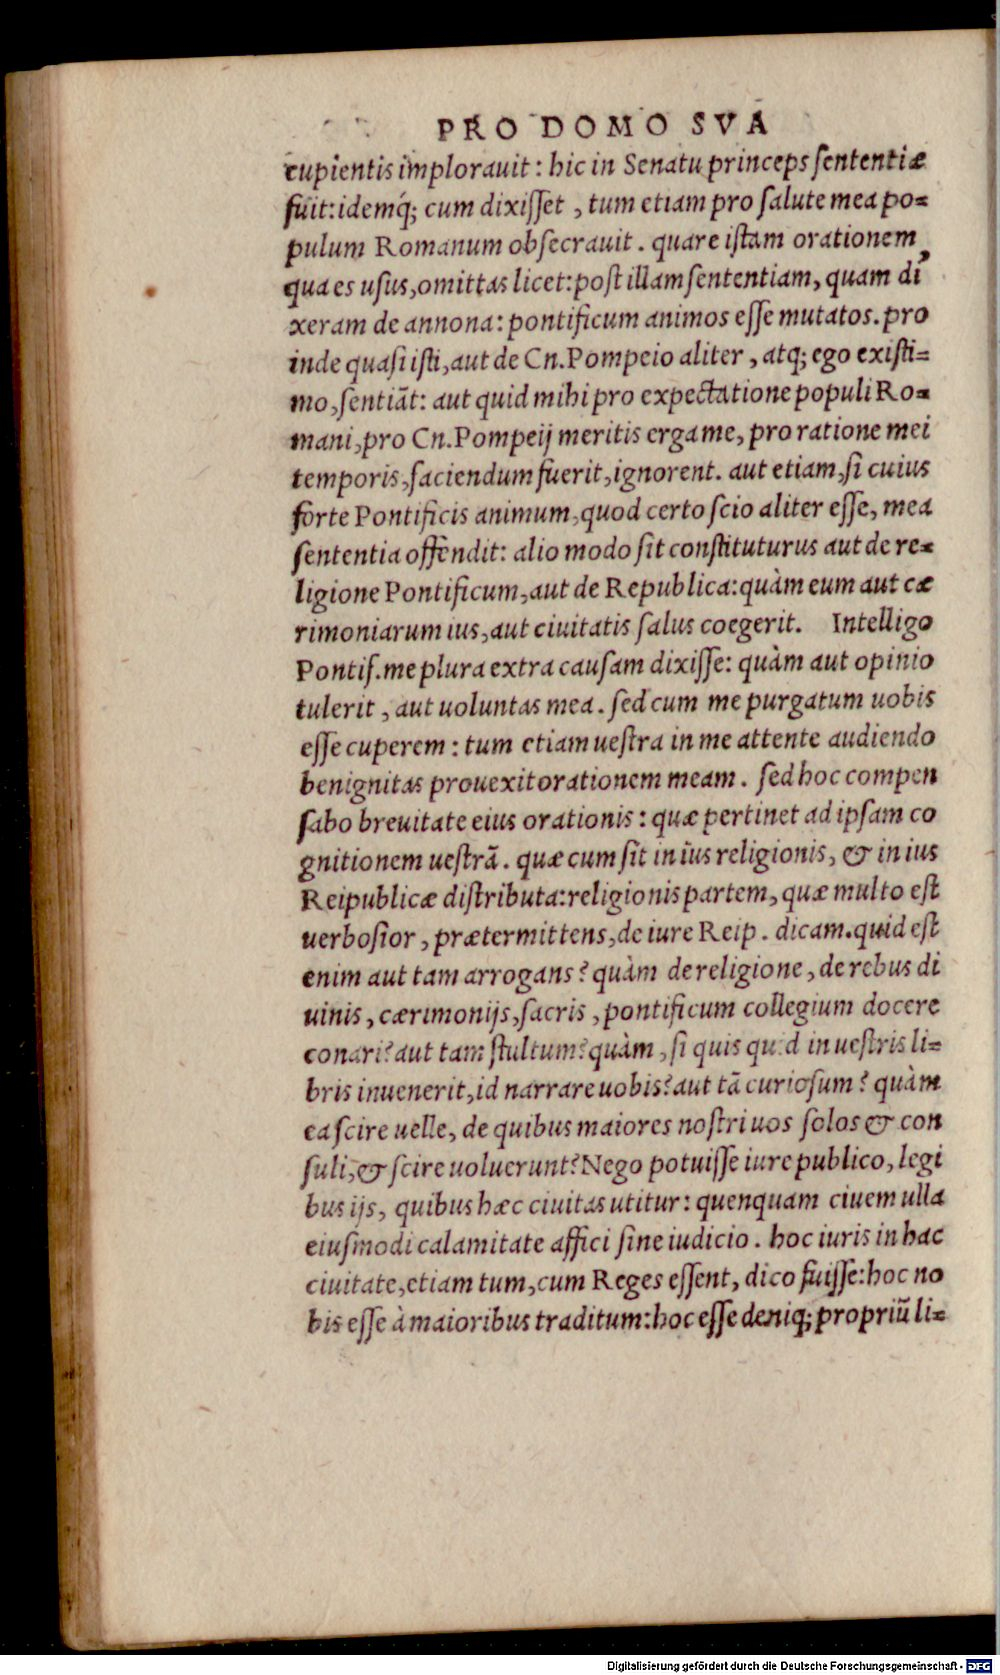 PRO DOMO SVA
cupientis implorauit: hic in Senatu princeps sententiæ
fuit: idemq́; cum dixisset, tum etiam pro salute mea po=
pulum Romanum obsecrauit. quare istam orationem,
qua es usus, omittas licet: post illam sententiam, quam di
xeram de annona: pontificum animos esse mutatos. pro
inde quasi isti, aut de Cn. Pompeio aliter, atq; ego existi=
mo, sentiāt: aut quid mihi pro expectatione populi Ro=
mani, pro Cn. Pompeij meritis erga me, pro ratione mei
temporis, faciendum fuerit, ignorent. aut etiam, si cuius
forte Pontificis animum, quod certo scio aliter esse, mea
sententia offendit: alio modo sit constituturus aut de re=
ligione Pontificum, aut de Republica: quàm eum aut cæ
rimoniarum ius, aut ciuitatis salus coegerit. Intelligo
Pontif. me plura extra causam dixisse: quàm aut opinio
tulerit, aut uoluntas mea. sed cum me purgatum uobis
esse cuperem: tum etiam uestra in me attente audiendo
benignitas prouexit orationem meam. sed hoc compen
sabo breuitate eius orationis: quæ pertinet ad ipsam co
gnitionem uestrā. quæ cum sit in ius religionis, & in ius
Reipublicæ distributa: religionis partem, quæ multo est
uerbosior, prætermittens, de iure Reip. dicam. quid est
enim aut tam arrogans? quàm de religione, de rebus di
uinis, cærimonijs, sacris, pontificum collegium docere
conari? aut tam stultum? quàm, si quis quid in uestris li=
bris inuenerit, id narrare uobis? aut tā curiosum? quàm
ea scire uelle, de quibus maiores nostri uos solos & con
suli, & scire uoluerunt? Nego potuisse iure publico, legi
bus ijs, quibus hæc ciuitas utitur: quenquam ciuem ulla
eiusmodi calamitate affici sine iudicio. hoc iuris in hac
ciuitate, etiam tum, cum Reges essent, dico fuisse: hoc no
bis esse à maioribus traditum: hoc esse deniq; propriū li=
Digitalisierung gefördert durch die Deutsche Forschungsgemeinschaft - DFG